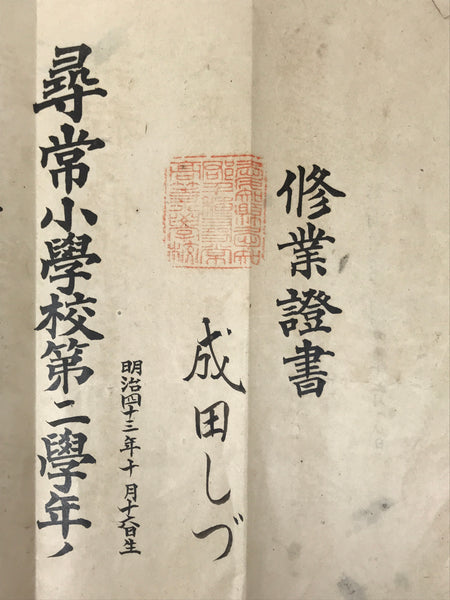 修業證書
成田しづ
明治四十三年十月十六日生
尋常小學校第二學年ノ